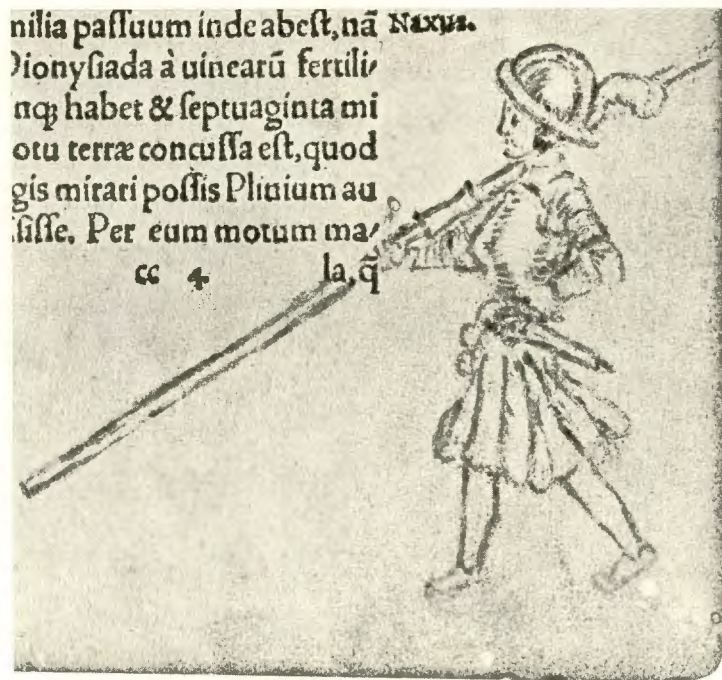 milia paſſuum inde abeſt, nā Naxus.
Dionyſiada à uinearū fertili⸗
nq; habet & ſeptuaginta mi
otu terræ concuſſa eſt, quod
gis mirari poſſis Plinium au
ſiſſe. Per eum motum ma⸗
cc 4 la, q̃